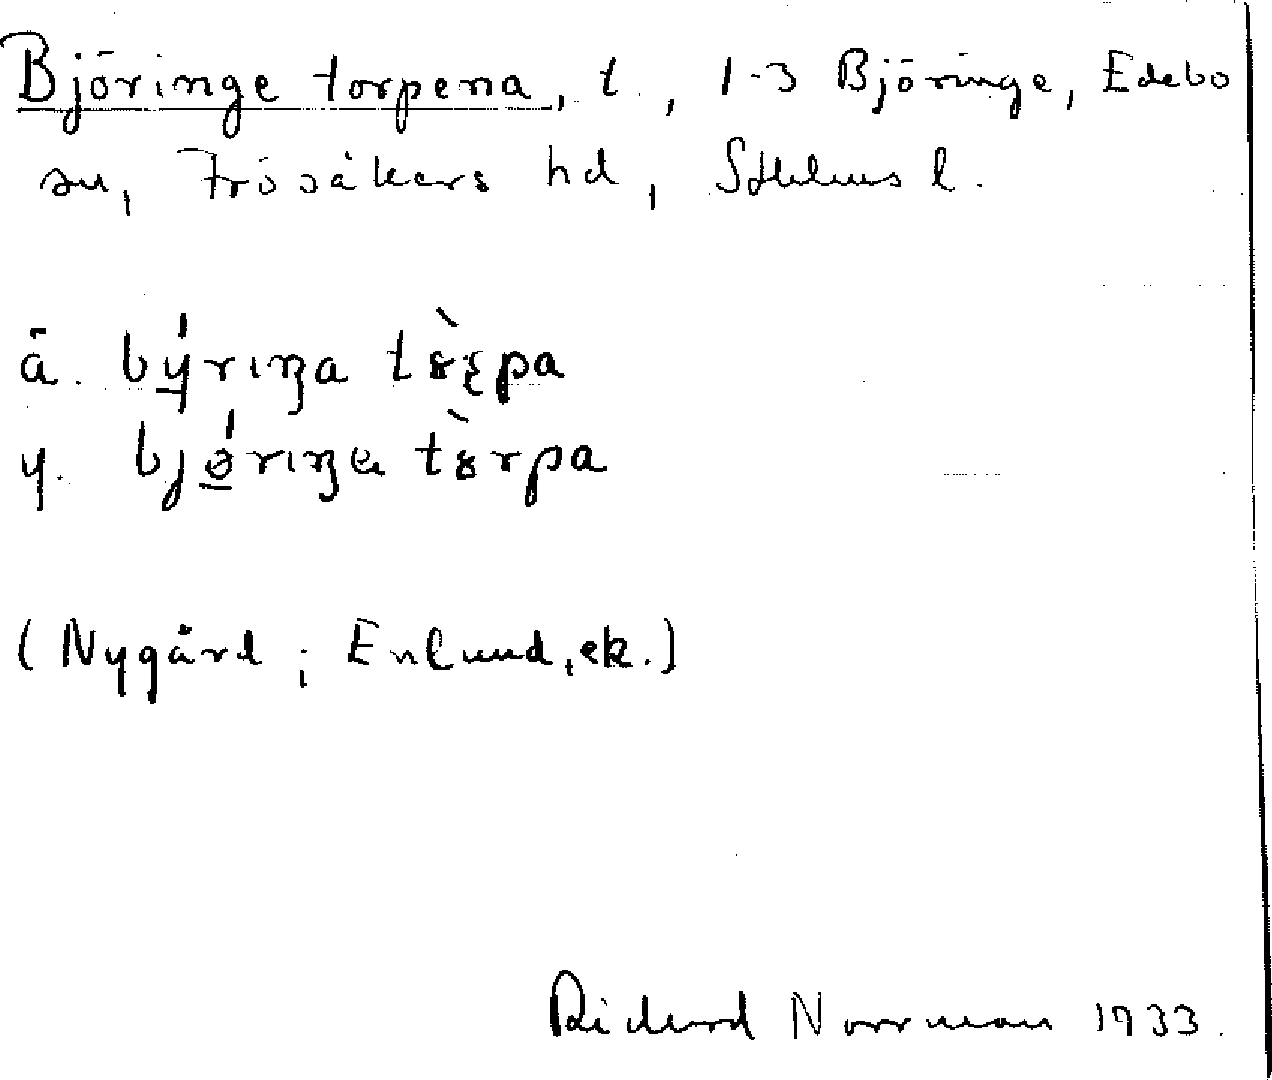 Björinge torpena, t., 1-3 Björinge, Edebo
sn, Frösåkers hd, Sthlms l.
ä. bý̲riŋa tꞛ̀rpa
y. bjǿ̲riŋa tꞛ̀rpa
(Nygård; Enlund, ek.)
Rickard Norrman 1933.